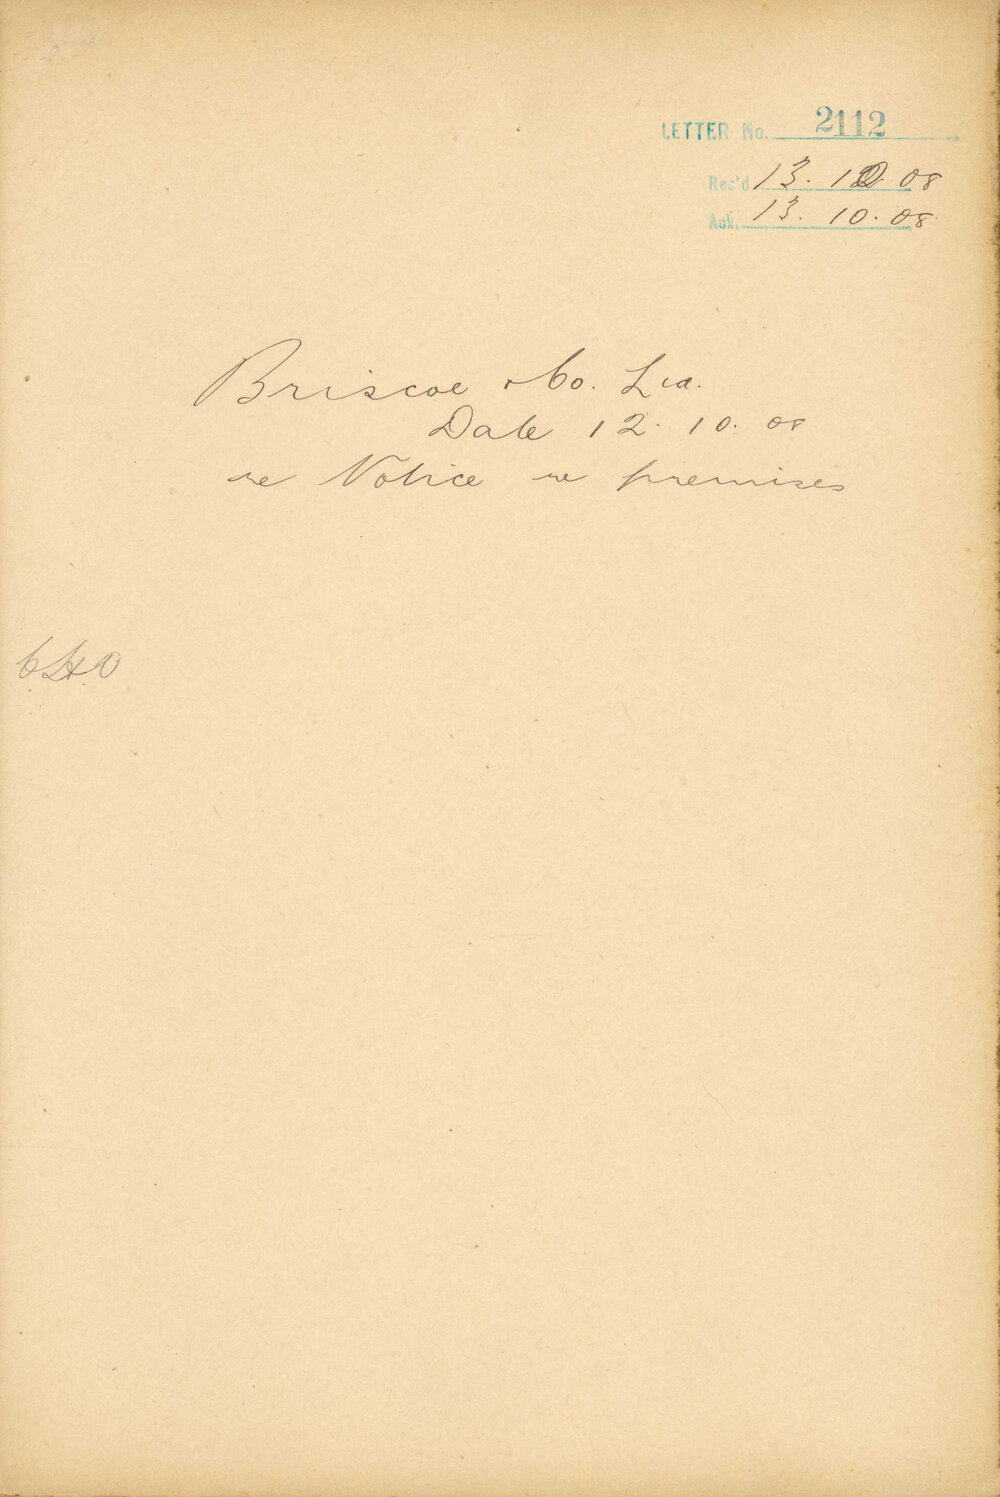 LETTER No. 2112
Rec'd 13. 10 08
Ack. 13. 10. 08
Briscoe & Co. Ltd.
Date 12. 10. 08
re Notice re premises